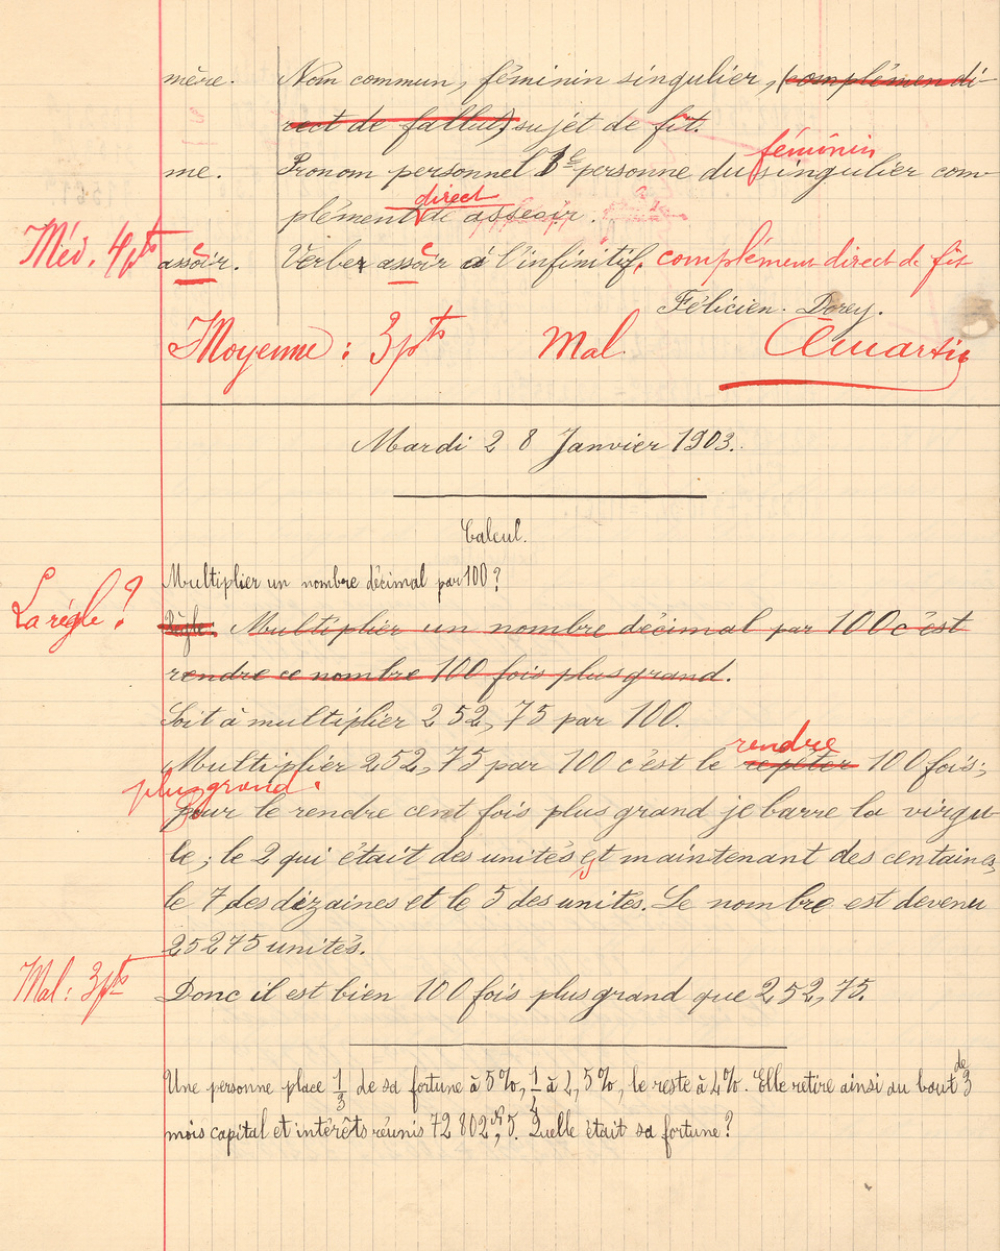 mère. Nom commun, féminin singulier, (complémen di-
rect de fallut) sujet de fit.
féminin
me. Pronom personnel 1e personne du singulier com-
direct
plément de asseoir.
Méd. 4pts assoir. Verbe assoir à l'infinitif. complément direct de fit
e e
Félicien Dorey.
Moyenne : 3pts Mal
Mardi 28 Janvier 1903.
Calcul.
Multiplier un nombre décimal par 100 ?
La règle ?
Règle. Multiplier un nombre décimal par 100 c'est
rendre ce nombre 100 fois plus grand.
Soit à multiplier 252,75 par 100.
rendre
Multiplier 252,75 par 100 c'est le repéter 100 fois;
plus grand.
pour le rendre cent fois plus grand je barre la virgu-
le; le 2 qui était des unités est maintenant des centaines
le 7 des dizaines et le 5 des unités. Le nombre est devenu
25275 unités.
Mal : 3pts Donc il est bien 100 fois plus grand que 252,75.
Une personne place 1/3 de sa fortune à 5%, 1/4 à 2,5%, le reste à 4%. Elle retire ainsi au bout de 3
mois capital et intérêts réunis 72802f,5. Quelle était sa fortune ?